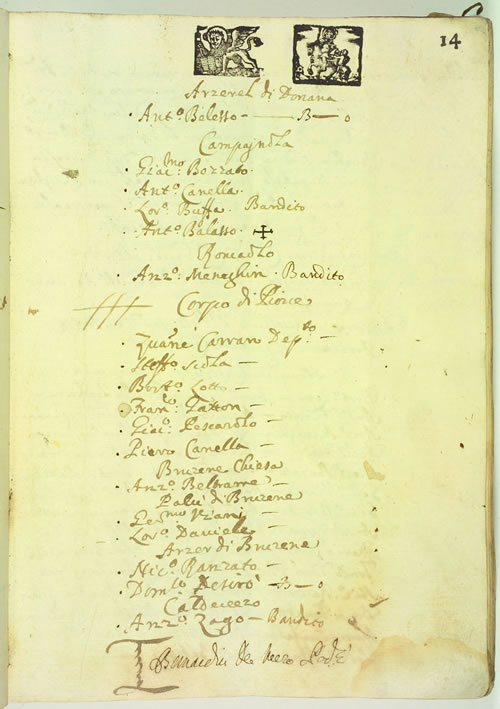 14
Arzerel di Donana
Ant.º Beletto - B - o
Campagnola
Giac.mo Bozzato.
Ant.º Canella.
Lor.º Buffa. Bandito
Ant.º Balasso. ✠
Roncaolo
Anz.º Meneghin. Bandito
Corpo di Piove
Zuane Carraro Dep.to -
Steff.º Scola -
Bort.º Lotto -
Fran.co Gatton -
Giac.º Pescarolo -
Piero Canella -
Bruzene Chiesa
Anz.º Beltrame -
Palù di Bruzene
Ger.mo Viani -
Lor.º Daniele -
Arzer di Bruzene
Nic.º Ranzato -
Dom.co Desirò - B - o
Caldevero
Anz.º Zago - Bandito